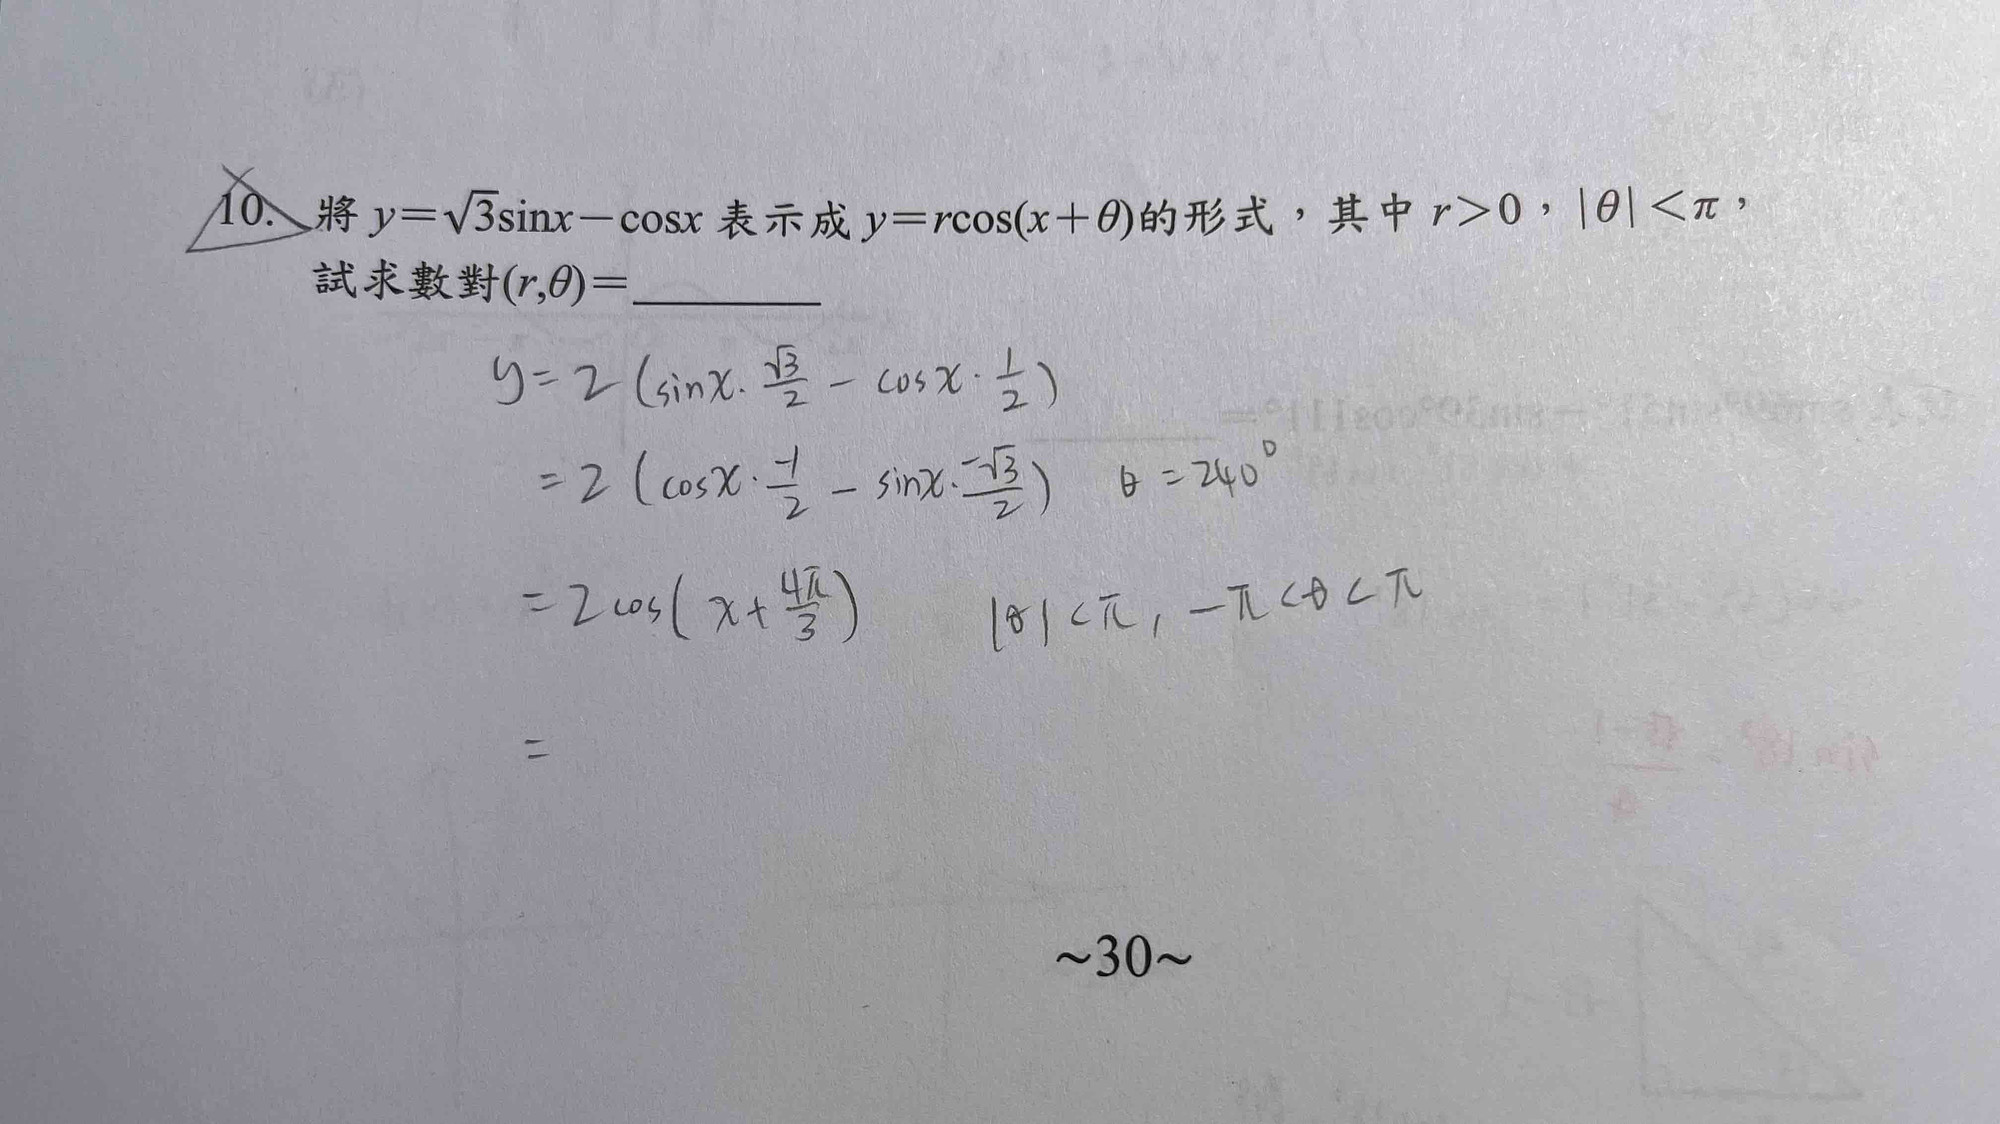 10. 將 y=√3sinx－cosx 表示成 y=rcos(x＋θ)的形式，其中 r＞0，|θ|＜π，
試求數對(r,θ)=________
y = 2 (sinx · √3/2 － cosx · 1/2)
= 2 (cosx · -1/2 － sinx · -√3/2) θ = 240°
= 2cos(x + 4π/3) |θ| < π, -π < θ < π
=
~30~